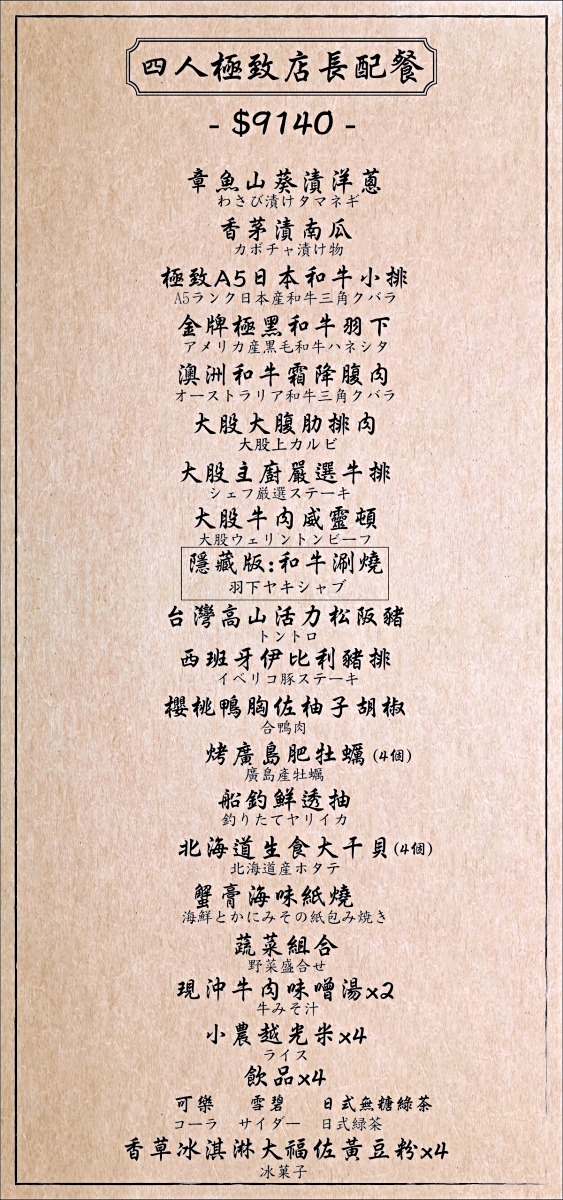 四人極致店長配餐
- $9140 -
章魚山葵漬洋蔥
わさび漬けタマネギ
香茅漬南瓜
カボチャ漬け物
極致A5日本和牛小排
A5ランク日本産和牛三角クバラ
金牌極黑和牛羽下
アメリカ産黒毛和牛ハネシタ
澳洲和牛霜降腹肉
オーストラリア和牛三角クバラ
大股大腹肋排肉
大股上カルビ
大股主廚嚴選牛排
シェフ厳選ステーキ
大股牛肉威靈頓
大股ウェリントンビーフ
隱藏版:和牛涮燒
羽下ヤキシャブ
台灣高山活力松阪豬
トントロ
西班牙伊比利豬排
イベリコ豚ステーキ
櫻桃鴨胸佐柚子胡椒
合鴨肉
烤廣島肥牡蠣(4個)
廣島產牡蠣
船釣鮮透抽
釣りたてヤリイカ
北海道生食大干貝(4個)
北海道産ホタテ
蟹膏海味紙燒
海鮮とかにみその紙包み焼き
蔬菜組合
野菜盛合せ
現沖牛肉味噌湯x2
牛みそ汁
小農越光米x4
ライス
飲品x4
可樂 雪碧 日式無糖綠茶
コーラ サイダー 日式緑茶
香草冰淇淋大福佐黃豆粉x4
冰菓子